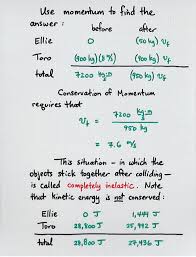 Use momentum to find the
answer : before after
Ellie 0 (50 kg) v_f
Toro (900 kg)(8 m/s) (900 kg) v_f
total 7200 kg·m/s (950 kg) v_f
Conservation of Momentum
requires that
v_f = 7200 kg·m/s / 950 kg
= 7.6 m/s
This situation – in which the
objects stick together after colliding –
is called completely inelastic. Note
that kinetic energy is not conserved:
Ellie 0 J 1,444 J
Toro 28,800 J 25,992 J
total 28,800 J 27,436 J